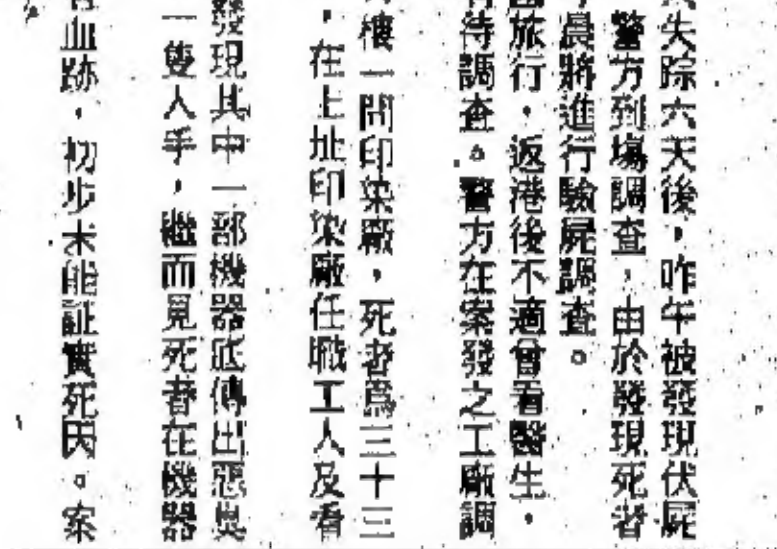 失踪六天後，咋午被發現伏屍
警方到塲調查，由於發現死者
晨將進行驗屍調查。
旅行，返港後不適曾看醫生，
待調查。警方在案發之工廠調
樓一間印染廠，死者爲三十三
，在上址印染廠任職工人及看
發現其中一部機器底傳出惡臭
一隻人手，繼而見死者在機器
血跡，初步未能証實死因。案